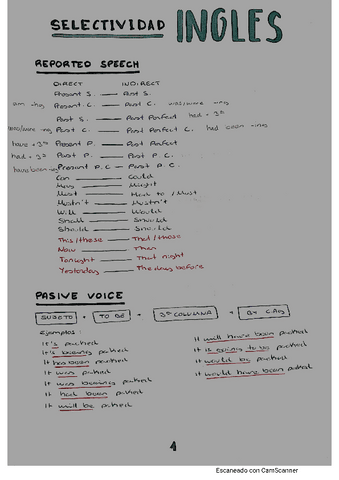 SELECTIVIDAD INGLES
REPORTED SPEECH
DIRECT INDIRECT
Present S. Past S.
am -ing Present C. Past C. was/were -ing
Past S. Past Perfect had + 3ª
was/were -ing Past C. Past Perfect C. had been -ing
have + 3ª Present P. Past Perfect
had + 3ª Past P. Past P.
have/been -ing Present P.C Past P.C.
Can Could
May Might
Must Had to / Must
Mustn't Mustn't
Will Would
Shall Should
Should Should
This/these That/those
Now Then
Tonight That night
Yesterday The day before
PASIVE VOICE
SUJETO + TO BE + 3ª COLUMNA + BY C.Ag
Ejemplos:
It's parked
It's beeing parked
It has been parked
It was parked
It was beeing parked
It had been parked
It will be parked
It will have been parked
It is going to be parked
It would be parked
It would have been parked
1
Escaneado con CamScanner